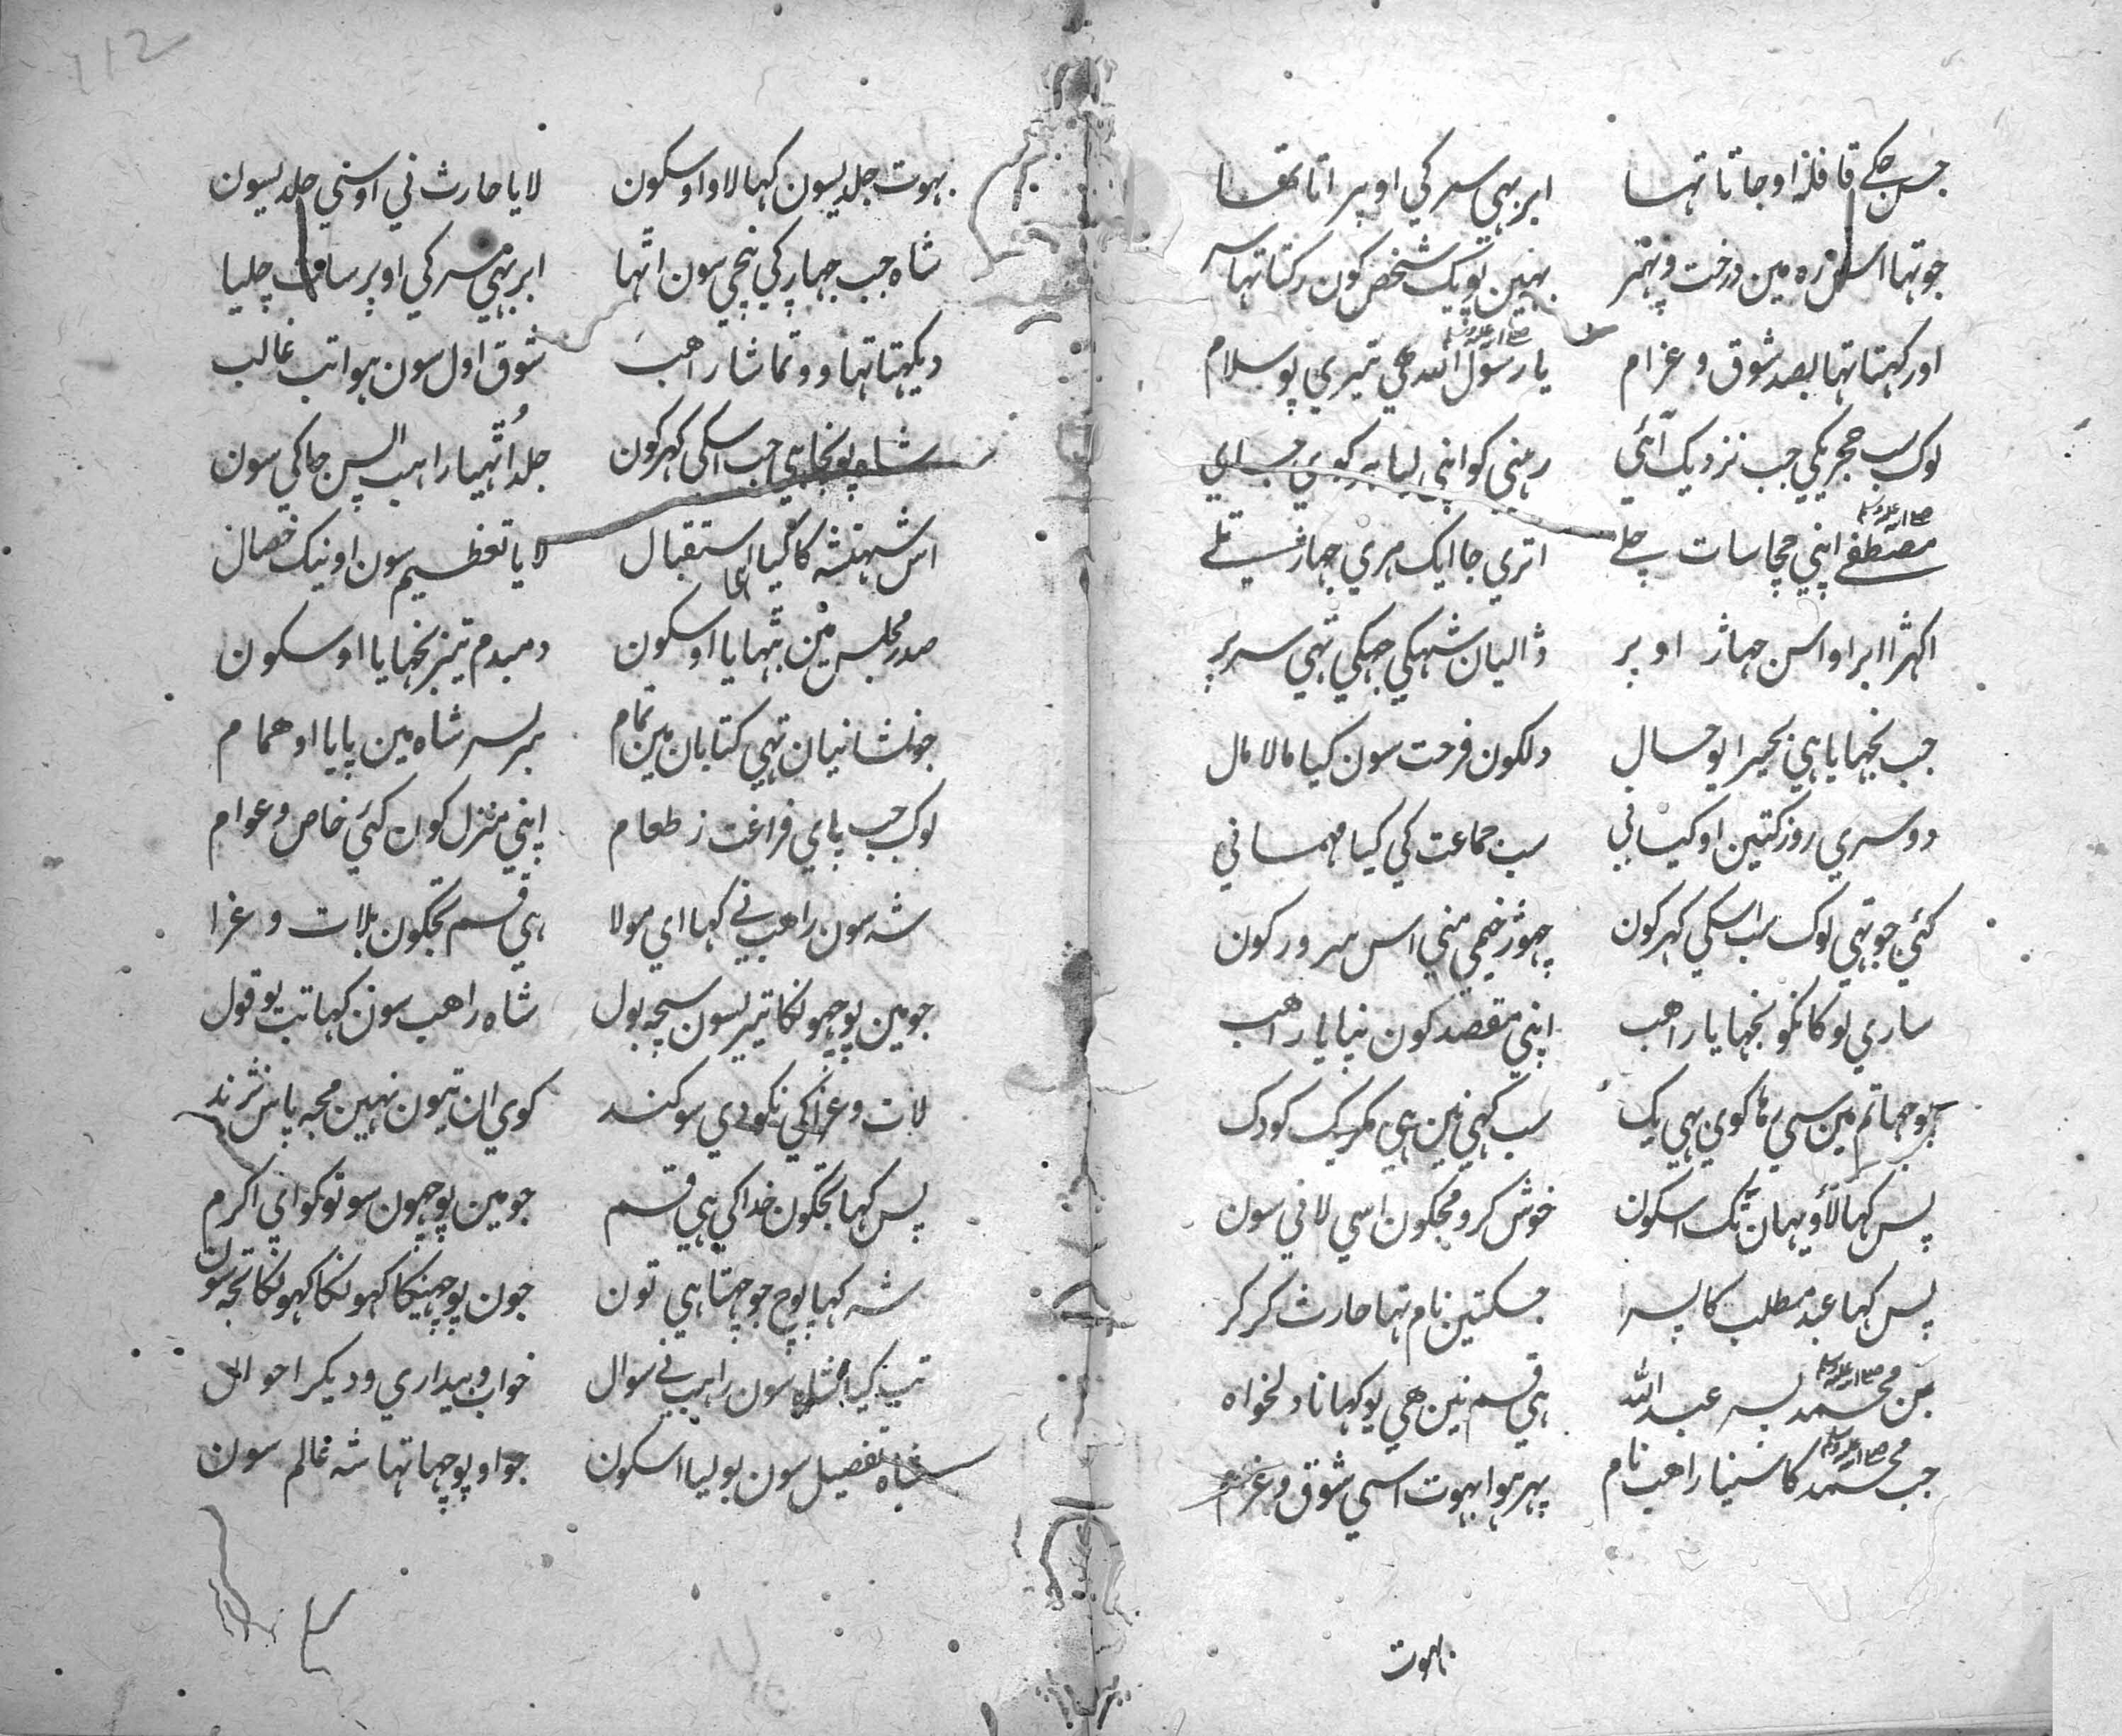 جس جکے قافلہ او جاتا تہا ابر بہی سر کی اوپر اتا تھا
جو تہا اس رہ مین درخت و پتہر بہین یو یک شخص کون رکتا تہا سر
اور کہتا تہا بصد شوق و غرام یا رسول الله ھی تیری پو سلام
لوک سب حجر یکی جب نزدیک آئی رہنی کو اپنی لیا ہر کوی جای
مصطفے اپنی چچا سات چلے اتری جا ایک ہری جہاڑ تلے
اکہڑا ابر او اسن جہاڑ اوپر ڈالیان شہکی جہکی تہی سر پر
جب بجہایا ہی بحیرا یو حال دلکون فرحت سون کیا مالامال
دوسری روز کتین او کیانی سب جماعت کی کیا مہمانی
کئی جو تہی لوک سب اسکی کہر کون چہوڑ خیمی منی اس سرور کون
ساری لوکانکو بجہایا راھب اپنی مقصد کون نپایا راھب
پوچہا تم مین سی رہا کوی بہی یک سب کہی نین ہی مکر یک کودک
پس کہا لاؤ یہان تک اسکون خوش کرو مجکون اسی لانی سون
پس کہا عبد مطلب کا پسر جسکتین نام تہا حارث کر کر
بن محمد پسر عبد الله ہی قسم نین ھی یو کہانا دلخواہ
جب محمد کا سنیا راھب نام پہر ہوا بہوت اسی شوق و غرام
بہوت
بہوت جلدیسون کہا لاو اوسکون لایا حارث نی اوسنی جلدیسون
شاہ جب جہاڑ کی نیچی سون اٹہا ابر بہی سر کی اوپر سات چلیا
دیکہتا تہا وو تماشا راھب شوق اول سون ہوا تب غالب
شاہ پونچا ہی جب اسکی کہر کون جلد اٹہیا راہب الس جاکی سون
اس شہنشہ کا کیا استقبال لایا تعظیم سون او نیک خصال
صدر مجلس مین بٹہایا اوسکون دمبدم تیز بجہایا اوسکون
جو نشانیان تہی کتابان مین تمام سربسر شاہ مین پایا او ھمام
لوک جب پای فراغت ز طعام اپنی منزل کون کئی خاص و عوام
شہ سون راھب نے کہا ای مولا ہی قسم تجکون بلات و غرا
جو مین پوچہونکا تیریسون سچہ بول شاہ راھب سون کہا تب یو قول
لات و غرا کی نکو دی سوکند کوی ان تیون نہین مجہ پاس نژند
پس کہا تجکون خدا کی ہی قسم جو مین پوچہون سو تو کو ای اکرم
شہ کہا پوچ جو چہتا ہی تون جون پوچہینکا کہونکا کہونکا تجہ سون
تب کیا شاہ سون راہب نے سوال خواب و بیداری و دیکر احوال
شاہ تفصیل سون بولیا اسکون جو او پوچہا تہا شہ عالم سون